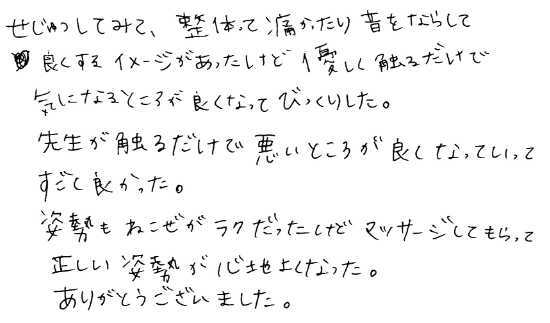 せじゅつしてみて、整体って痛かったり音をならして
良くするイメージがあったけど優しく触るだけで
気になるところが良くなってびっくりした。
先生が触るだけで悪いところが良くなっていって
すごく良かった。
姿勢もねこぜがラクだったけどマッサージしてもらって
正しい姿勢が心地よくなった。
ありがとうございました。